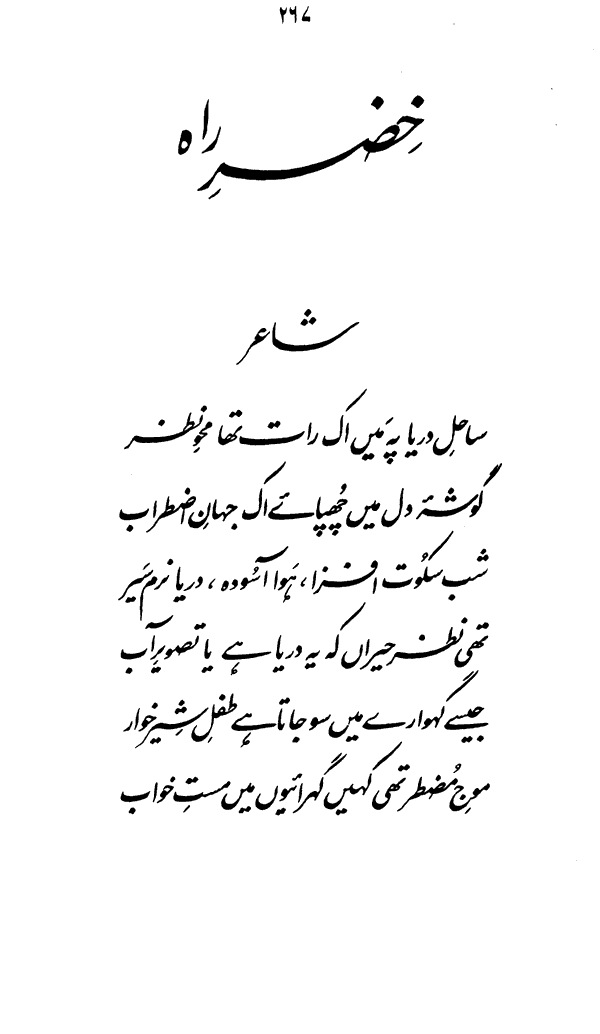 ۲۶۷
خِضرِ راہ
شاعر
ساحلِ دریا پہ مَیں اک رات تھا محوِ نظر
گوشۂ دل میں چُھپائے اک جہانِ اضطراب
شب سکُوت افزا، ہَوا آسُودہ، دریا نرم سَیر
تھی نظر حیراں کہ یہ دریا ہے یا تصویرِ آب
جیسے گہوارے میں سو جاتا ہے طفلِ شِیر خوار
موجِ مُضطر تھی کہیں گہرائیوں میں مستِ خواب